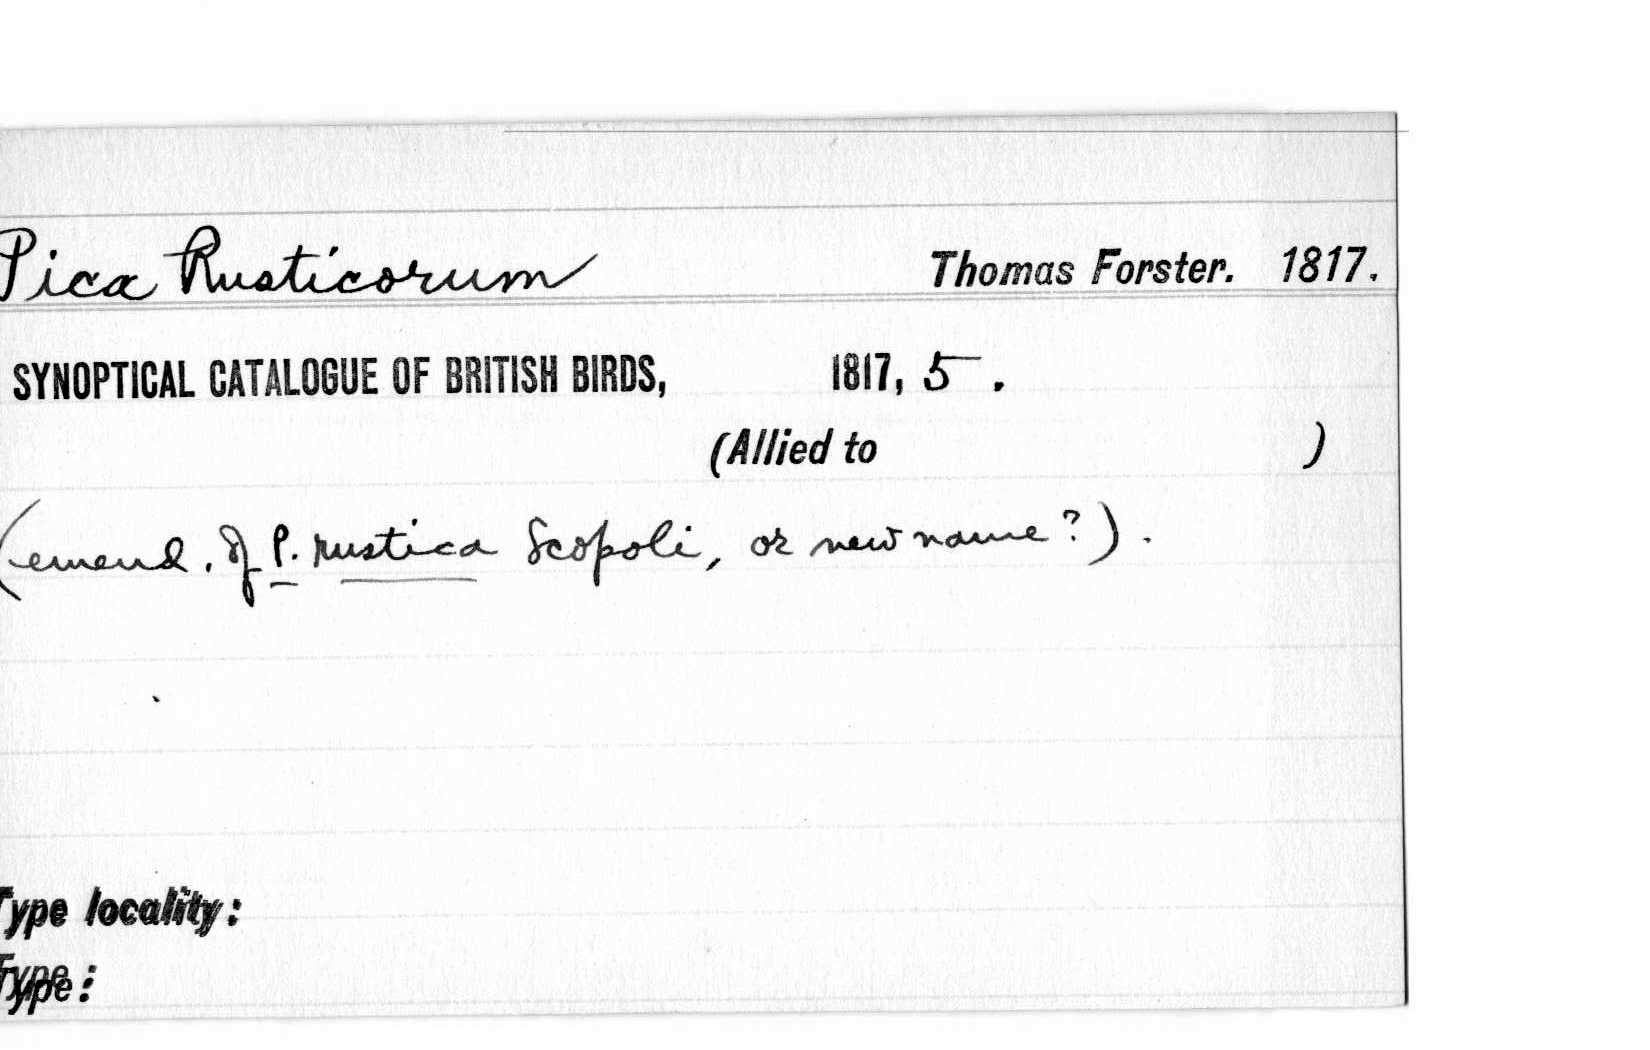 Pica Rusticorum Thomas Forster. 1817.
SYNOPTICAL CATALOGUE OF BRITISH BIRDS, 1817, 5.
(Allied to )
(emend. of P. rustica Scopoli, or new name?).
Type locality:
Type: